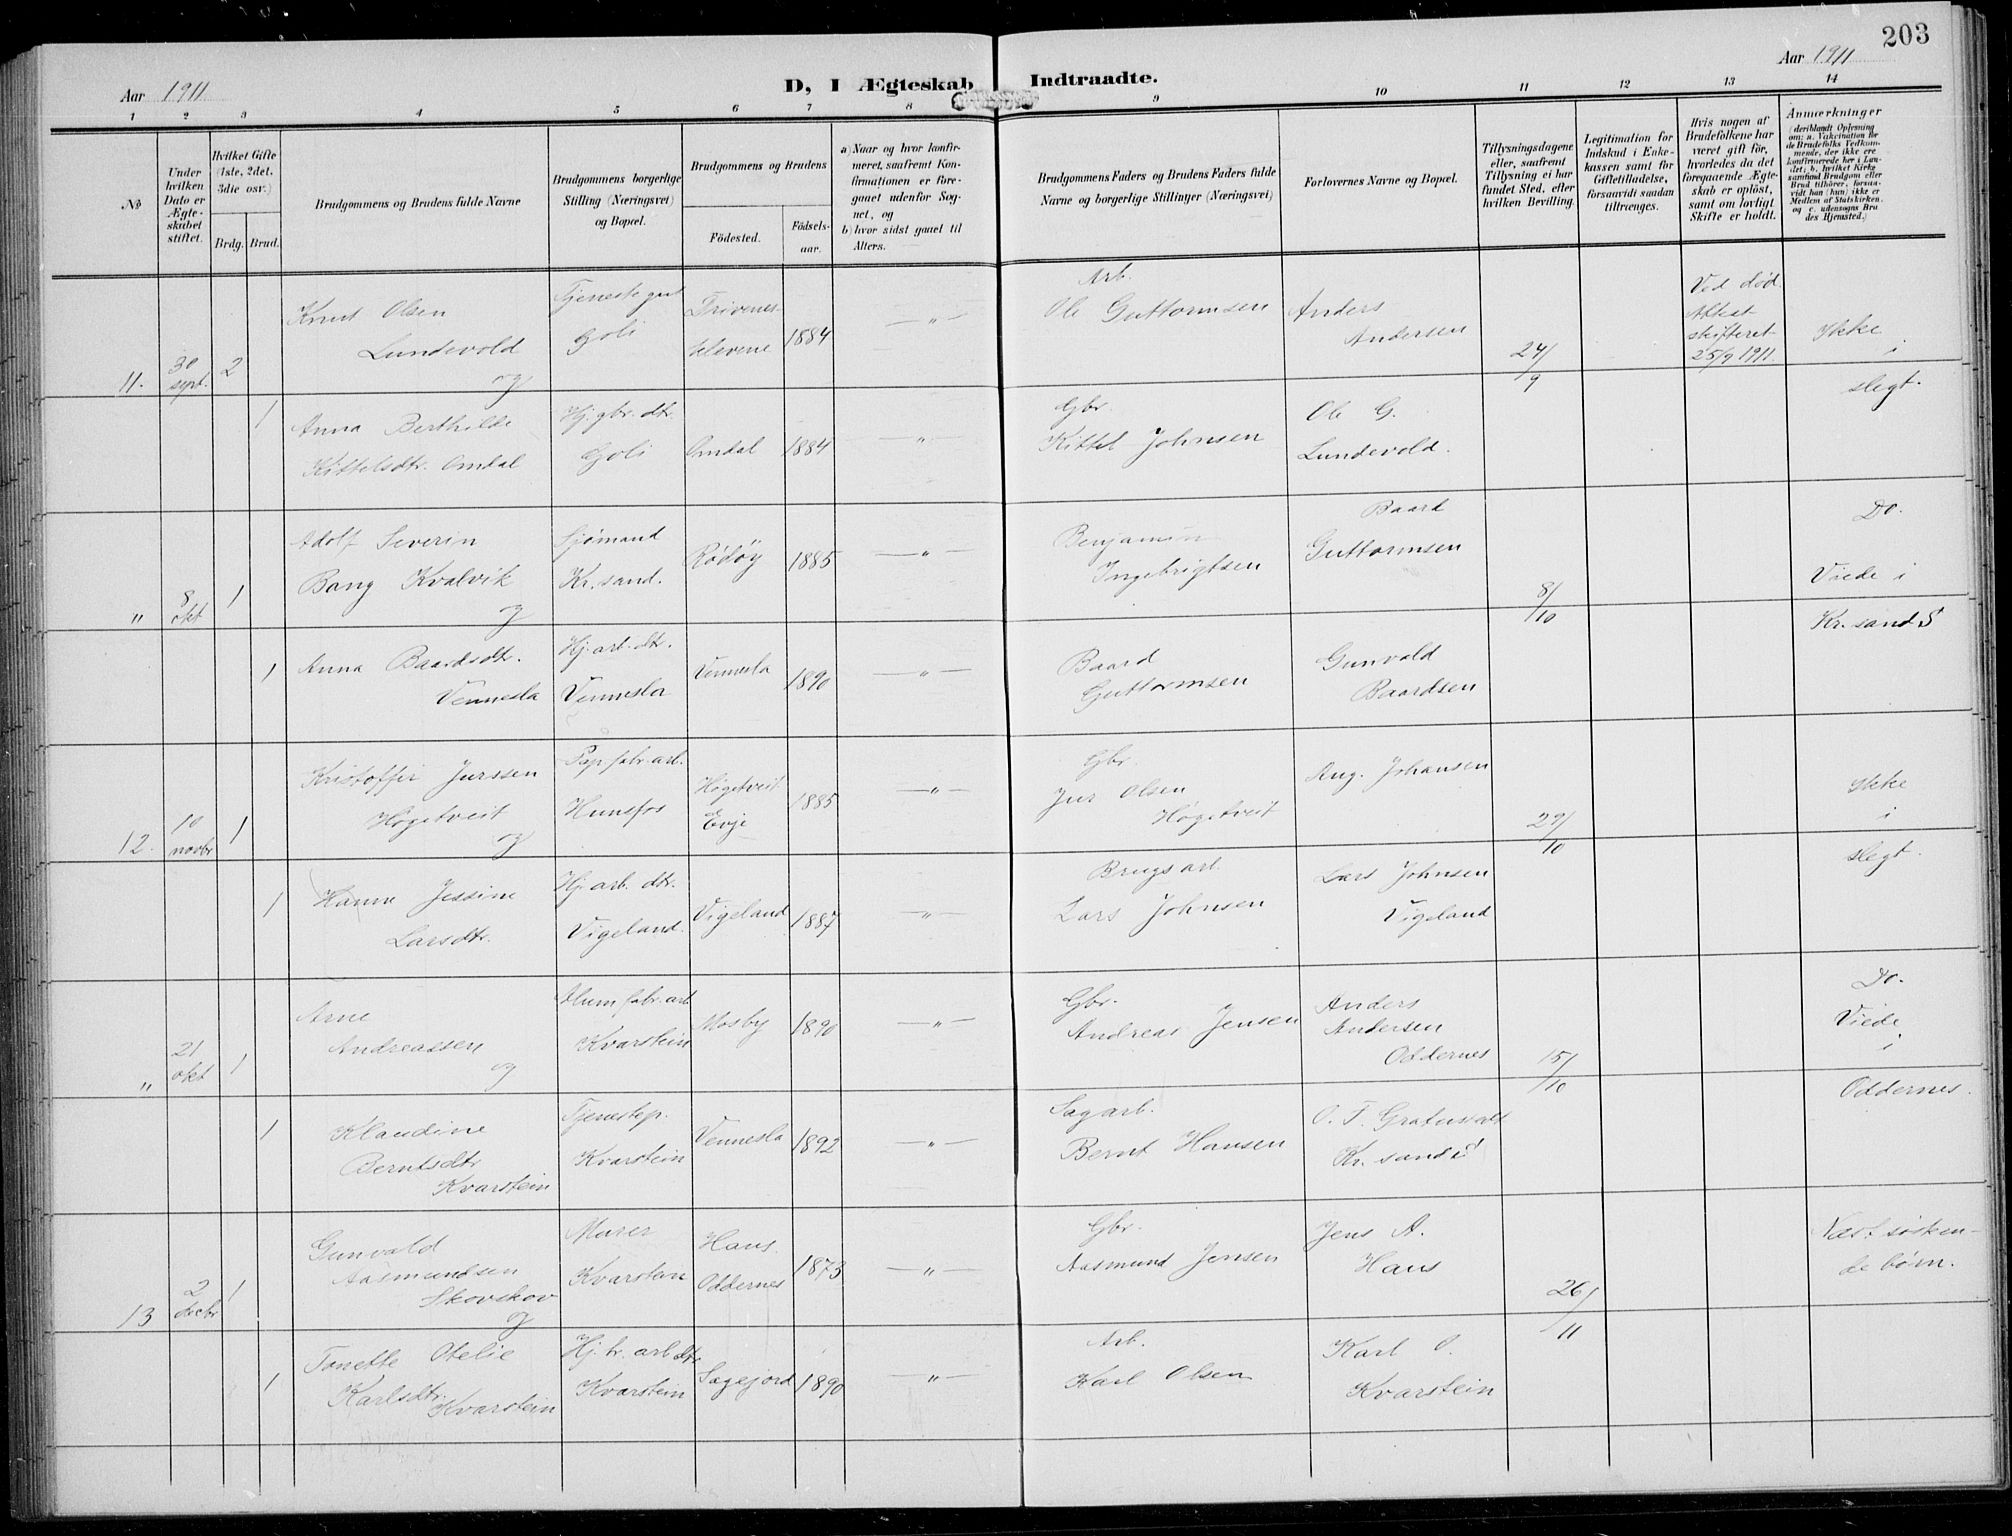 203
Aar 1911
D, I Ægteskab Indtraadte.
Aar 1911
1 2 3 4 5 6 7 8 9 10 11 12 13 14
No
Under hvilken Dato er Ægteskabet stiftet.
Hvilket Gifte (1ste, 2det, 3die osv.)
Brdg. Brud.
Brudgommens og Brudens fulde Navne
Brudgommens borgerlige Stilling (Næringsvei) og Bopæl.
Brudgommens og Brudens
Fødested. Fødselsaar.
a) Naar og hvor konfirmeret, saafremt Konfirmationen er foregaaet udenfor Sognet, og
b) hvor sidst gaaet til Alters.
Brudgommens Faders og Brudens Faders fulde Navne og borgerlige Stillinger (Næringsvei)
Forlovernes Navne og Bopæl.
Tillysningsdagene eller, saafremt Tillysning ei har fundet Sted, efter hvilken Bevilling.
Legitimation for Indskud i Enkekassen samt for Giftetilladelse, forsaavidt saadan tiltrænges.
Hvis nogen af Brudefolkene har været gift før, hvorledes da det foregaaende Ægteskab er opløst, samt om lovligt Skifte er holdt.
Anmærkninger
(deriblandt Oplysning om: a. Vakcination for de Brudefolks Vedkommende, der ikke ere konfirmerede her i Landet; b. hvilket Kirkesamfund Brudgom eller Brud tilhører, forsaavidt han (hun) ikke er Medlem af Statskirken, og c. udensogns Brudes Hjemsted.)
11. 30 sept. 2
Knut Olsen
Lundevold
og
Tjenestegut
Goli
Trivenes
1884
—"—
Arb.
Ole Guttormsen
Anders
Andersen
24/9
Ved død
Attest
skifteret
25/9 1911
Ikke
i
slegt.
1
Anna Berthilde
Kittelsdtr. Omdal
Hj. gbr. dtr.
Goli
Omdal
1884
"
Gbr.
Kittel Johnsen
Ole G.
Lundevold.
" 8 okt 1
Adolf Severin
Bang Kvalvik
og
Sjømand
Kr.sand.
Rødøy
1885
—"—
Benjamin
Ingebrigtsen
Baard
Guttormsen
8/10
Do.
Viede i
Kr.sand S
1
Anna Baardsdtr.
Vennesla
Hj. arb. dtr.
Vennesla
Vennesla
1890
—"—
Baard
Guttormsen
Gunvald
Baardsen
12. 10 novbr 1
Kristoffer Jurssen
Høgetveit
og
Pap.fabr.arb.
Hunsfos
Høgetveit
Evje
1885
—"—
Gbr.
Jur Olsen
Høgetveit
Aug. Johansen
29/10
Ikke
i
slegt.
1
Hanna Jessine
Larsdtr.
Hj. arb. dtr.
Vigeland.
Vigeland
1887
—"—
Brugsarb.
Lars Johnsen
Lars Johnsen
Vigeland
" 21 okt 1
Arne
Andreassen
og
Alum.fabr.arb
Kvarstein
Mosby
1890
—"—
Gbr.
Andreas Jensen
Anders
Andersen
Oddernes
15/10
Do.
Viede
i
Oddernes.
1
Klaudine
Berntsdtr
Kvarstein
Tjenestep.
Kvarstein
Vennesla
1892
—"—
Sagarb.
Bernt Hansen
O. F.
Kr. sand
13 2 decbr 1
Gunvald
Aasmundsen
Skovskov
og
Murer
Kvarstein
Haus.
Oddernes
1873
—"—
Gbr.
Aasmund Jensen
Jens A.
Haus
26/11
Næst søsken-
debørn.
1
Tonette Otelie
Karlsdtr. Kvarstein
Hj. br. arb dtr
Kvarstein
Sagejord
1890
—"—
Arb.
Karl Olsen
Karl O.
Kvarstein